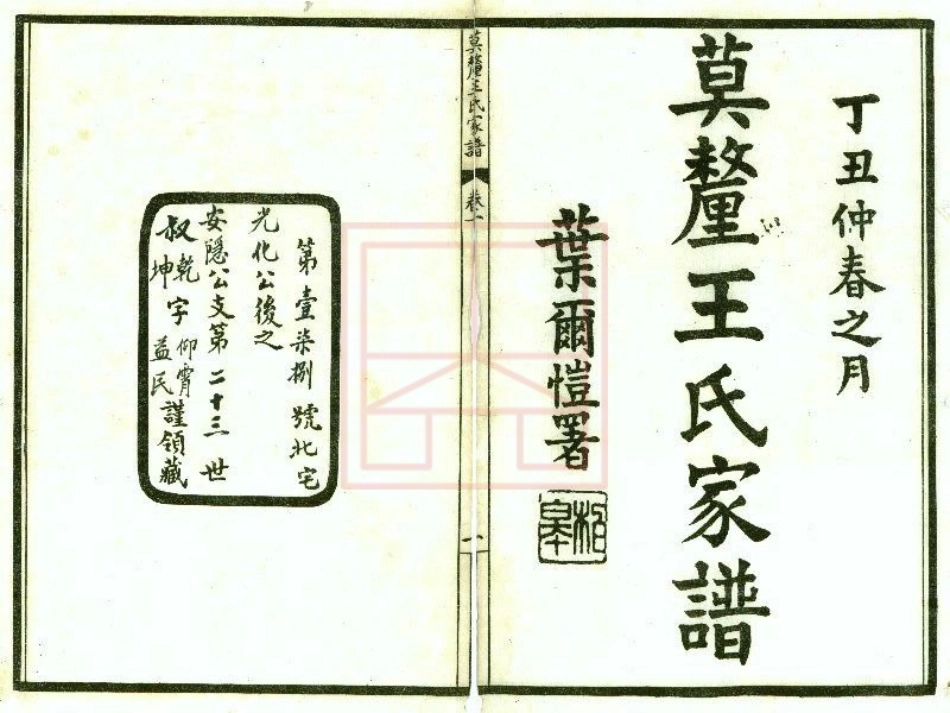 丁丑仲春之月
莫釐王氏家譜
葉爾愷署
柏皋
莫釐王氏家譜
卷一
一
第壹柒捌號北宅
光化公後之
安隱公支第二十三世
叔乾字仰霄謹領藏
坤益民